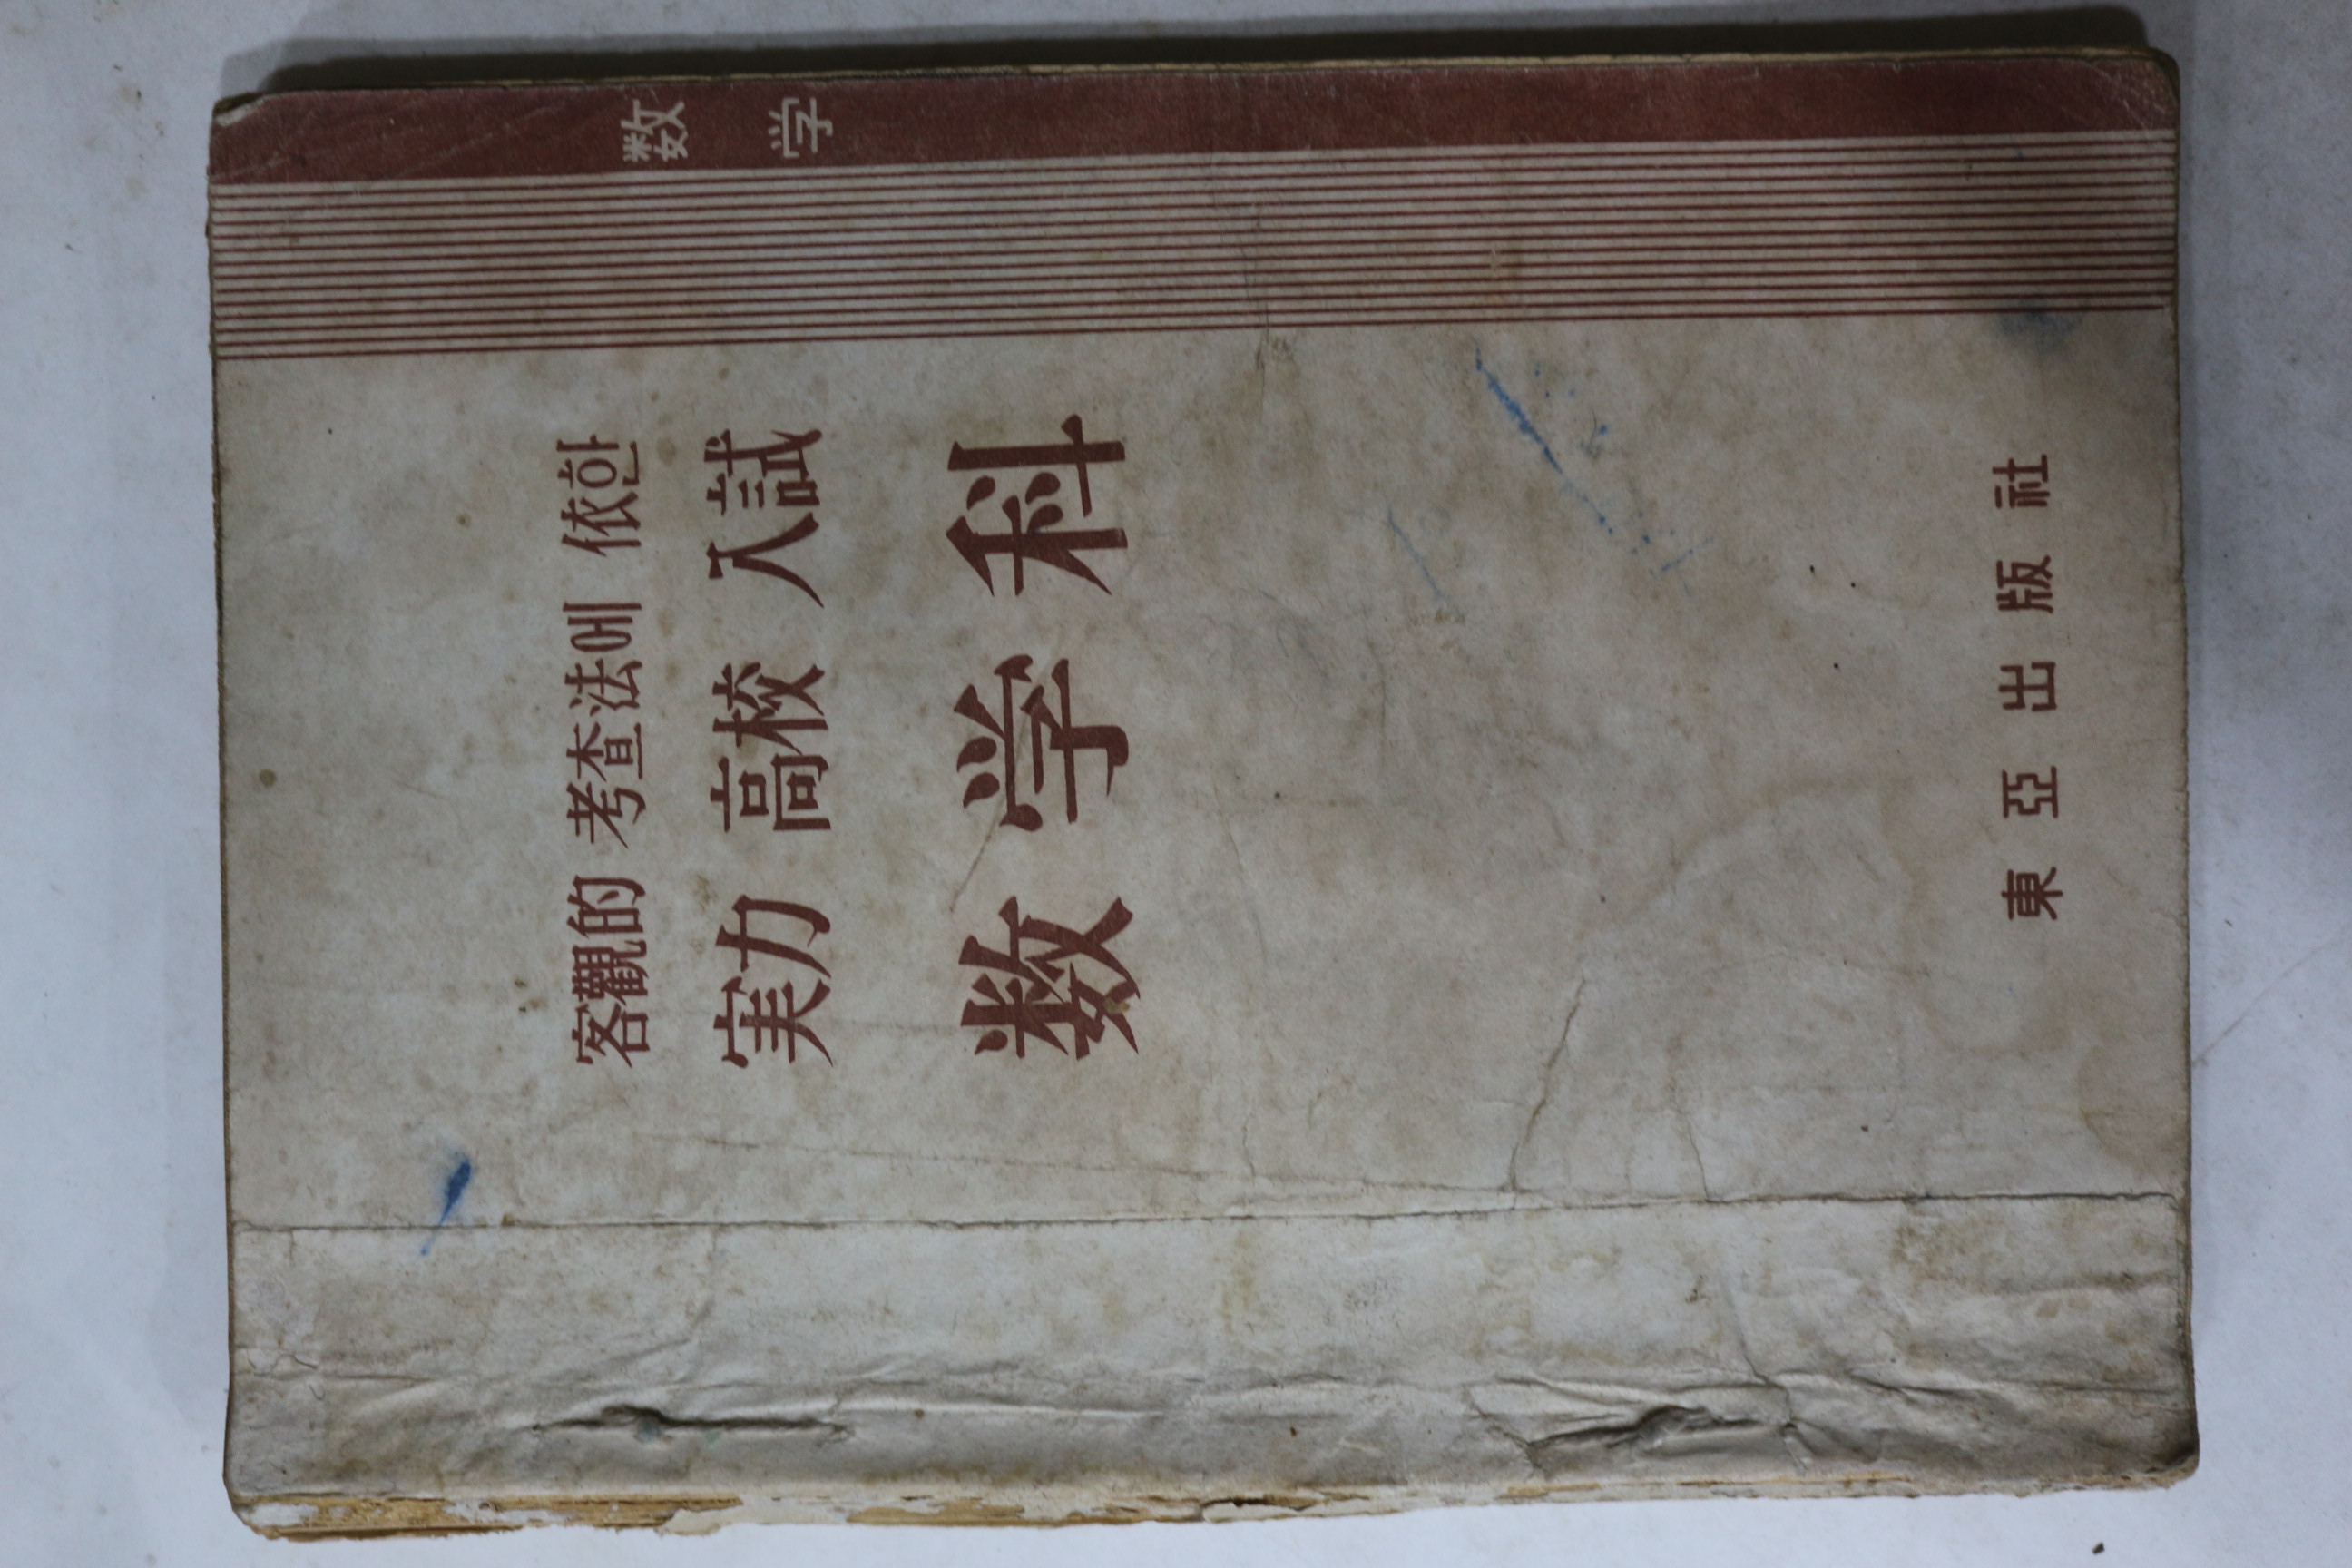 客觀的 考査法에 依한
実力 高校 入試
数学科
東亞出版社
数学